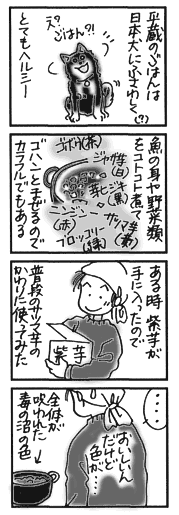 平蔵のごはんは
日本犬にふさわしく(?)
とてもヘルシー
え?
ごはん?!
魚の身や野菜類
をコトコト煮て
ゴハンとまぜるので
カラフルでもある
ゴボウ(茶)
ジャガ芋(白)
ヒジキ(黒)
サツマ芋(黄)
ブロッコリー(緑)
ニンジン(赤)
ある時 紫芋が
手に入ったので
普段のサツマ芋の
かわりに使ってみた
紫芋
・・・
おいしいん
だけど
色が…
全体が
呪われた
毒の沼の色